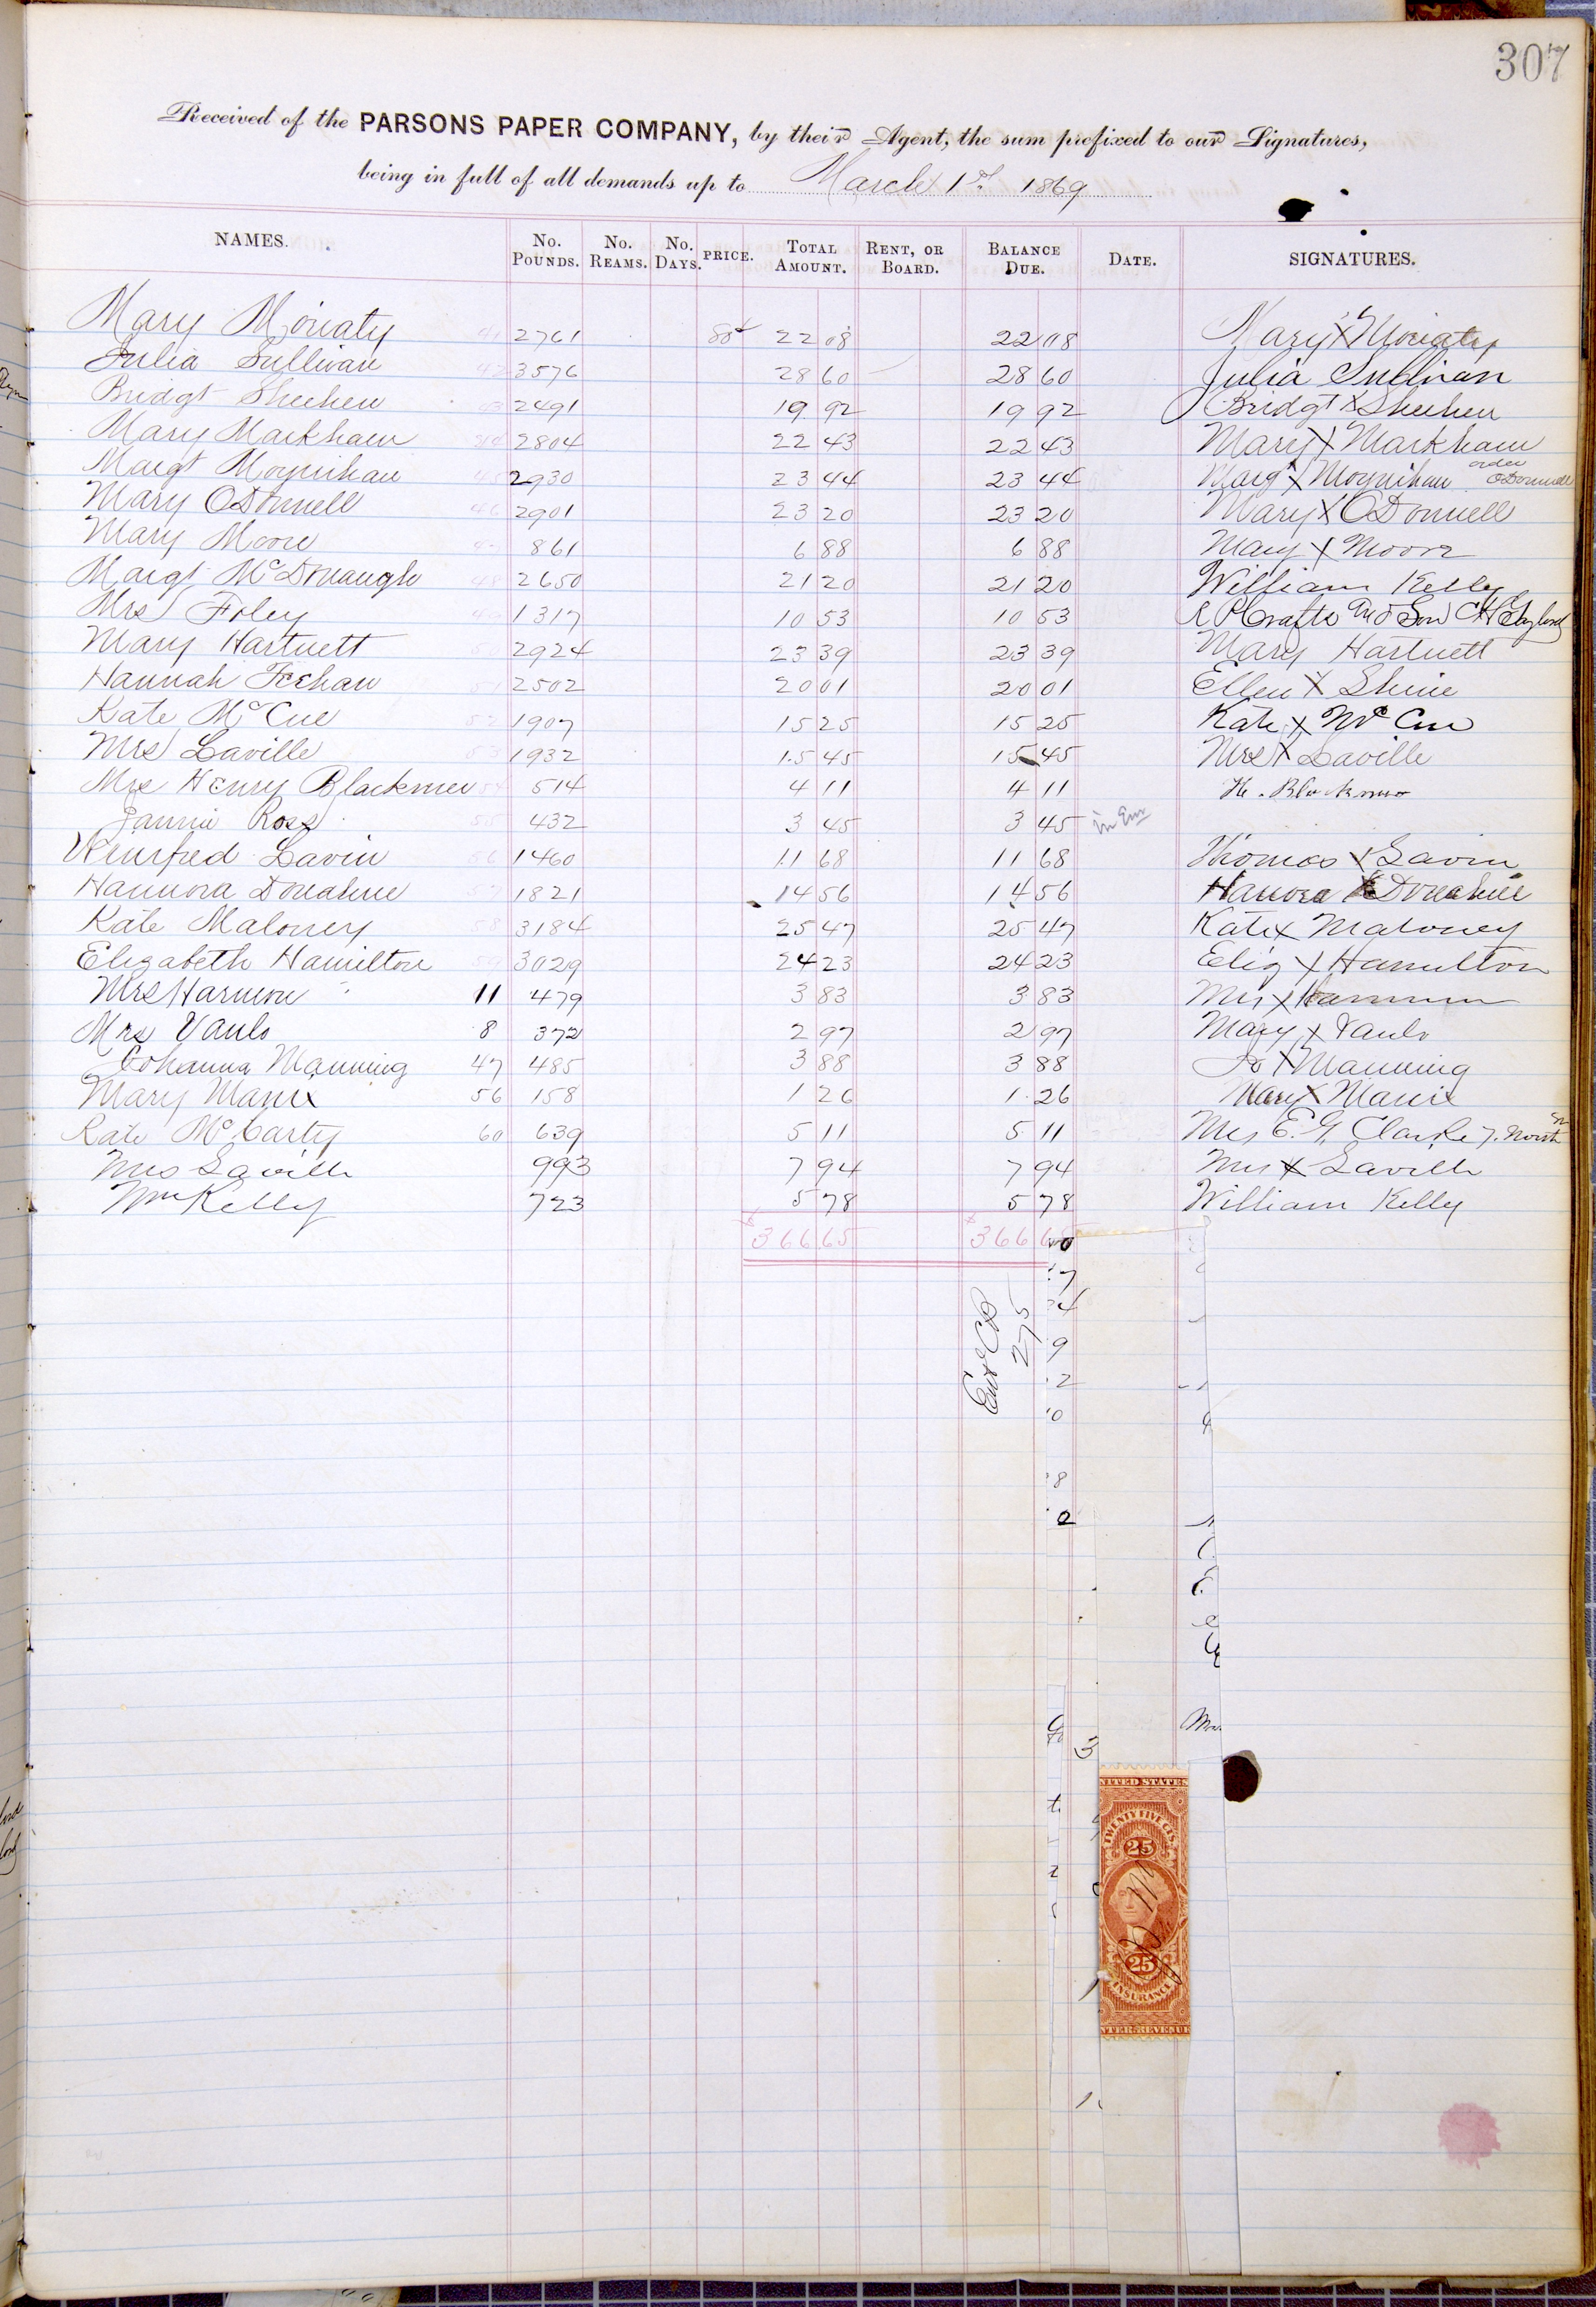 307
Received of the PARSONS PAPER COMPANY, by their Agent, the sum prefixed to our Signatures,
being in full of all demands up to March 1st 1869
NAMES. No. POUNDS. No. REAMS. No. DAYS. PRICE. TOTAL AMOUNT. RENT, OR BOARD. BALANCE DUE. DATE. SIGNATURES.
Mary Moriaty 41 2761 80¢ 22 08 22 08 Mary X Moriaty
Julia Sullivan 42 3576 28 60 28 60 Julia Sullivan
Bridgt Sheehen 43 2491 19 92 19 92 Bridgt X Sheehen
Mary Markham 44 2804 22 43 22 43 Mary X Markham
Margt Moynihan 45 2930 23 44 23 44 Margt X Moynihan order ODonnell
Mary ODonnell 46 2901 23 20 23 20 Mary X ODonnell
Mary Moore 47 861 6 88 6 88 Mary X Moore
Margt McDonaugh 48 2650 21 20 21 20 William Kelly
Mrs Foley 49 1317 10 53 10 53 R P Crafts and Son
Mary Hartnett 50 2924 23 39 23 39 Mary Hartnett
Hannah Feehan 51 2502 20 01 20 01 Ellen X Shine
Kate McCue 52 1907 15 25 15 25 Kate X McCue
Mrs Laville 53 1932 15 45 15 45 Mrs X Laville
Mrs Henry Blackmer 54 514 4 11 4 11 H. Blackmer
Jannie Ross 55 432 3 45 3 45
Winifred Lavin 56 1460 11 68 11 68 Thomas X Lavin
Hannora Donahue 57 1821 14 56 14 56 Hanora X Donahue
Kate Maloney 58 3184 25 47 25 47 Kate X Maloney
Elizabeth Hamilton 59 3029 24 23 24 23 Eliz X Hamilton
Mrs Harmon 11 479 3 83 3 83 Mrs X Harmon
Mrs Vaulo 8 372 2 97 2 97 Mary X Vaulo
Johanna Manning 47 485 3 88 3 88 Jo X Manning
Mary Manix 56 158 1 26 1 26 Mary X Manix
Kate McCarty 60 639 5 11 5 11 Mrs E. G. Clarke
Mrs Laville 993 7 94 7 94 Mrs X Laville
Wm Kelly 723 5 78 5 78 William Kelly
$366 65 $366
Ent CB
275
UNITED STATES
TWENTY FIVE CTS.
25
25
INSURANCE
INTER. REVENUE